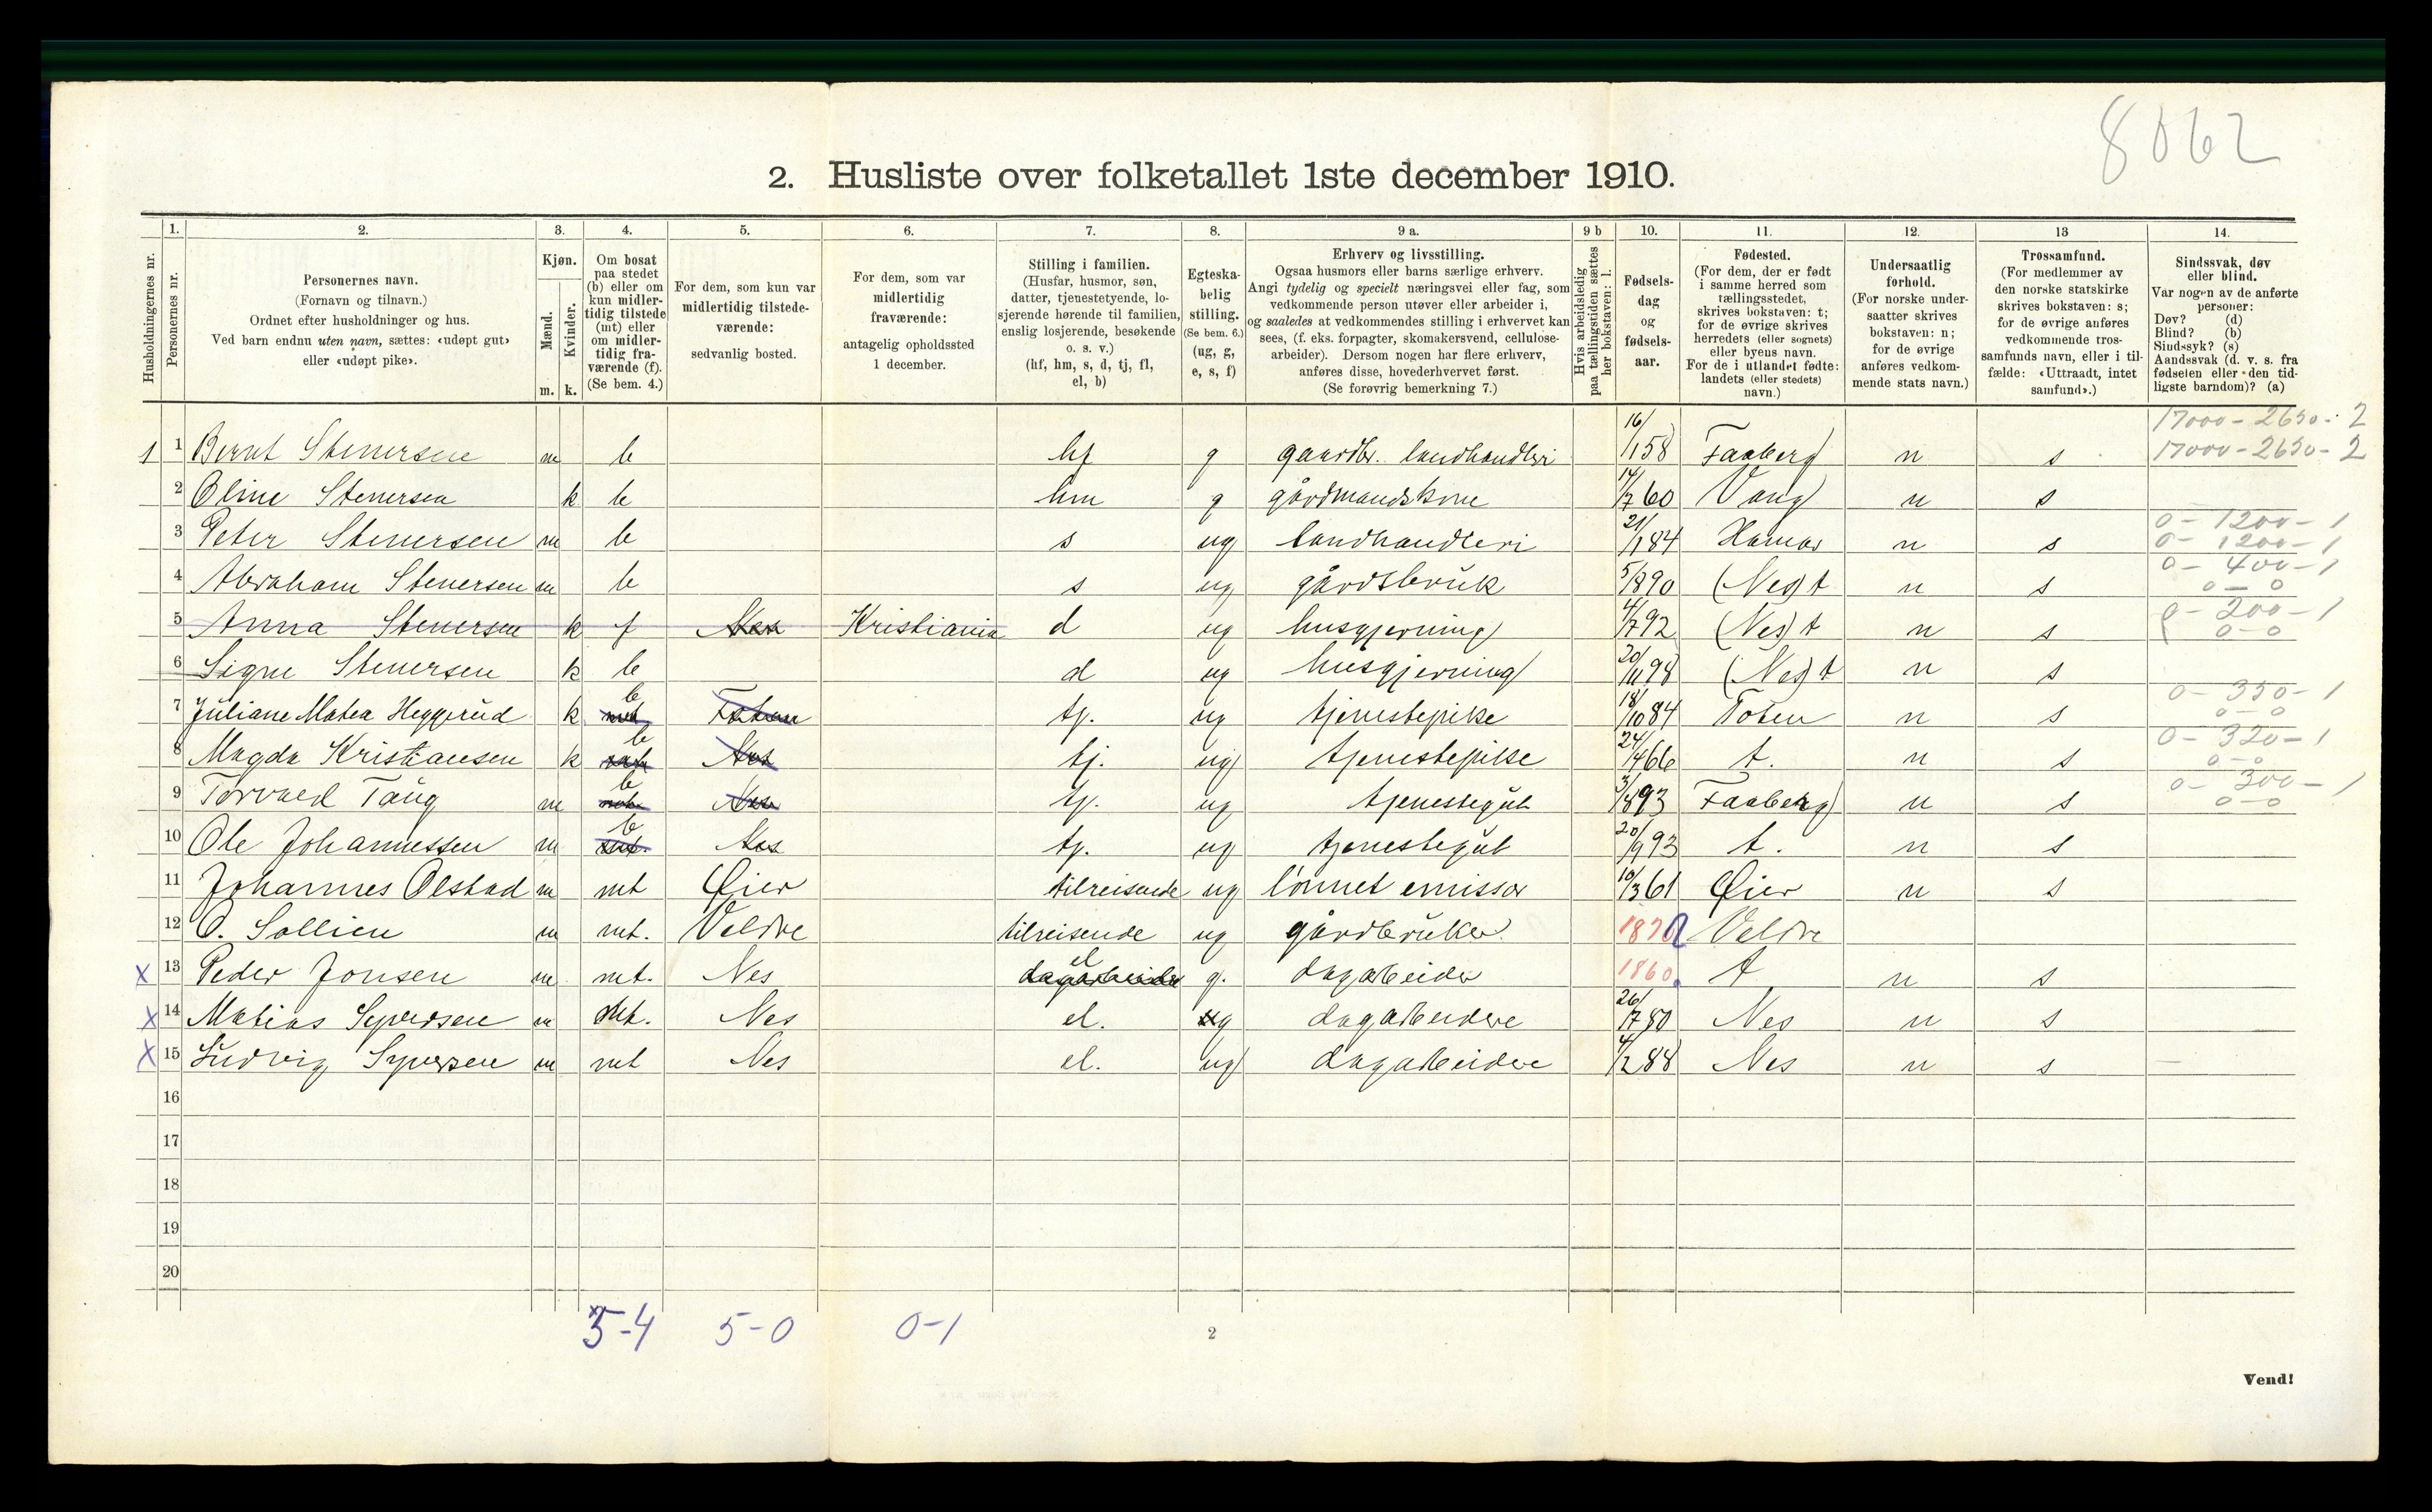 8062
2. Husliste over folketallet 1ste december 1910.
Husholdningernes nr.
1. 2. 3. 4. 5. 6. 7. 8. 9 a. 9 b 10. 11. 12. 13 14.
Personernes nr.
Personernes navn.
(Fornavn og tilnavn.)
Ordnet efter husholdninger og hus.
Ved barn endnu uten navn, sættes: «udøpt gut»
eller «udøpt pike».
Kjøn.
Mænd.
Kvinder.
m. k.
Om bosat
paa stedet
(b) eller om
kun midler-
tidig tilstede
(mt) eller
om midler-
tidig fra-
værende (f).
(Se bem. 4.)
For dem, som kun var
midlertidig tilstede-
værende:
sedvanlig bosted.
For dem, som var
midlertidig
fraværende:
antagelig opholdssted
1 december.
Stilling i familien.
(Husfar, husmor, søn,
datter, tjenestetyende, lo-
sjerende hørende til familien,
enslig losjerende, besøkende
o. s. v.)
(hf, hm, s, d, tj, fl,
el, b)
Egteska-
belig
stilling.
(Se bem. 6.)
(ug, g,
e, s, f)
Erhverv og livsstilling.
Ogsaa husmors eller barns særlige erhverv.
Angi tydelig og specielt næringsvei eller fag, som
vedkommende person utøver eller arbeider i,
og saaledes at vedkommendes stilling i erhvervet kan
sees, (f. eks. forpagter, skomakersvend, cellulose-
arbeider). Dersom nogen har flere erhverv,
anføres disse, hovederhvervet først.
(Se forøvrig bemerkning 7.)
Hvis arbeidsledig
paa tællingstiden sættes
her bokstaven: l.
Fødsels-
dag
og
fødsels-
aar.
Fødested.
(For dem, der er født
i samme herred som
tællingsstedet,
skrives bokstaven: t;
for de øvrige skrives
herredets (eller sognets)
eller byens navn.
For de i utlandet fødte:
landets (eller stedets)
navn.)
Undersaatlig
forhold.
(For norske under-
saatter skrives
bokstaven: n;
for de øvrige
anføres vedkom-
mende stats navn.)
Trossamfund.
(For medlemmer av
den norske statskirke
skrives bokstaven: s;
for de øvrige anføres
vedkommende tros-
samfunds navn, eller i til-
fælde: «Uttraadt, intet
samfund».)
Sindssvak, døv
eller blind.
Var nogen av de anførte
personer:
Døv? (d)
Blind? (b)
Sindssyk? (s)
Aandssvak (d. v. s. fra
fødselen eller den tid-
ligste barndom)? (a)
17000 - 2650 - 2
1 1 Bernt Stenersen m b hf g gaardbr. landhandleri 16/1 58 Faaberg n s 17000 - 2650 - 2
2 Oline Stenersen k b hm g gårdmandskone 14/7 60 Vang n s
0 - 1200 - 1
3 Peter Stenersen m b s ug landhandleri 21/1 84 Hamar n s 0 - 1200 - 1
0 - 400 - 1
4 Abraham Stenersen m b s ug gårdsbruk 5/8 90 (Nes) t n s 0 - 0
0 - 200 - 1
5 Anna Stenersen k f Nes Kristiania d ug husgjerning 4/7 92 (Nes) t n s 0 - 0
6 Signe Stenersen k b d ug husgjerning 20/11 98 (Nes) t n s
0 - 350 - 1
7 Juliane Matea Heggerud k b mt Toten tj. ug tjenestepike 18/10 84 Toten n s 0 - 0
0 - 320 - 1
8 Magda Kristiansen k b Nes tj. ug tjenestepike 24/4 66 t. n s 0 - 0
0 - 300 - 1
9 Torvald Taug m b mt. Nes tj. ug tjenestegut 3/8 93 Faaberg n s 0 - 0
10 Ole Johannessen m b mt. Nes tj. ug tjenestegut 20/9 93 t. n s
11 Johannes Olstad m mt Øier tilreisende ug lönnet emissær 10/3 61 Øier n s
12 O. Sollien m mt. Veldre tilreisende ug gårdbruker 1870 Veldre
x 13 Peder Jonsen m mt. Nes el dagarbeider g. dagarbeider 1860 t n s
x 14 Matias Syversen m mt. Nes el. g dagarbeidere 26/7 80 Nes n s
x 15 Ludvig Syversen m mt Nes el. ug dagarbeidere 4/2 88 Nes n s —
16
17
18
19
20
5-4 5-0 0-1
2
Vend!